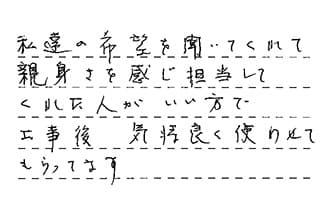 私達の希望を聞いてくれて
親身さを感じ担当して
くれた人がいい方で
工事後 気持良く使わせて
もらってます